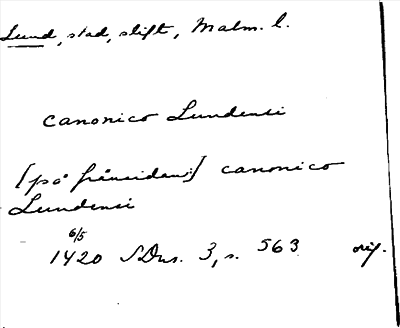 Lund, stad, stift, Malm. l.
canonico Lundensi
[på frånsidan:] canonico
Lundensi
6/5
1420 SDns. 3, s. 563 orig.